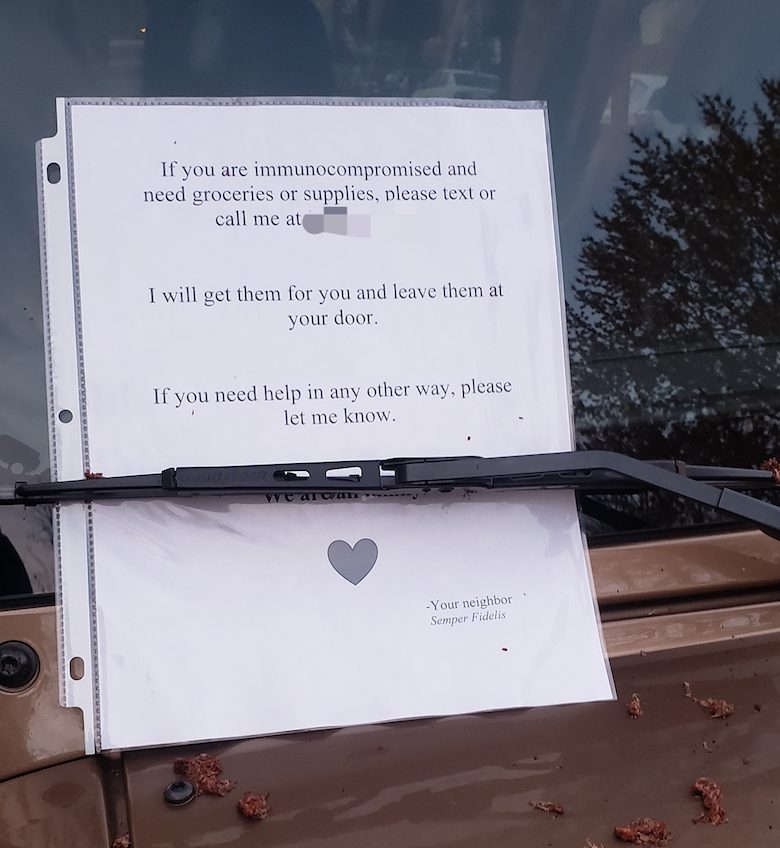 If you are immunocompromised and
need groceries or supplies, please text or
call me at
I will get them for you and leave them at
your door.
If you need help in any other way, please
let me know.
We are all
-Your neighbor
Semper Fidelis